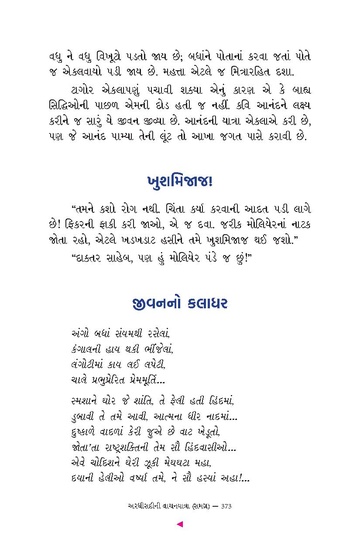 વધુ ને વધુ વિખૂટો પડતો જાય છે; બધાંને પોતાનાં કરવા જતાં પોતે
જ એકલવાયો પડી જાય છે. મહત્તા એટલે જ મિત્રારહિત દશા.
ટાગોર એકલાપણું પચાવી શક્યા એનું કારણ એ કે બાહ્ય
સિદ્ધિઓની પાછળ એમની દોડ હતી જ નહીં. કવિ આનંદને લક્ષ્ય
કરીને જ સારું યે જીવન જીવ્યા છે. આનંદની યાત્રા એકલાએ કરી છે,
પણ જે આનંદ પામ્યા તેની લૂંટ તો આખા જગત પાસે કરાવી છે.
ખુશમિજાજ!
“તમને કશો રોગ નથી. ચિંતા કર્યા કરવાની આદત પડી લાગે
છે! ફિકરની ફાકી કરી જાઓ, એ જ દવા. જરીક મોલિયેરનાં નાટક
જોતા રહો, એટલે ખડખડાટ હસીને તમે ખુશમિજાજ થઈ જશો.”
“દાક્તર સાહેબ, પણ હું મોલિયેર પંડે જ છું!”
જીવનનો કલાધર
અંગો બધાં સંયમથી રસેલાં,
કંગાલની હાય થકી ભીંજેલાં,
લંગોટીમાં કાય લઈ લપેટી,
ચાલે પ્રભુપ્રેરિત પ્રેમમૂર્તિ...
સ્મશાને ઘોર જે શાંતિ, તે ફેલી હતી હિંદમાં,
ડુબાવી તે તમે આવી, આત્મના ધીર નાદમાં...
દુષ્કાળે વાદળાં કેરી જુએ છે વાટ ખેડૂતો,
જોતા'તા રાષ્ટ્રશક્તિની તેમ સૌ હિંદવાસીઓ...
એવે ચોદિશને ઘેરી ઝૂકી મેઘઘટા મહા,
દયાની હેલીઓ વર્ષ્યા તમે, ને સૌ હસ્યાં અહા!...
અરધી સદીની વાચનયાત્રા (સમગ્ર) — 373